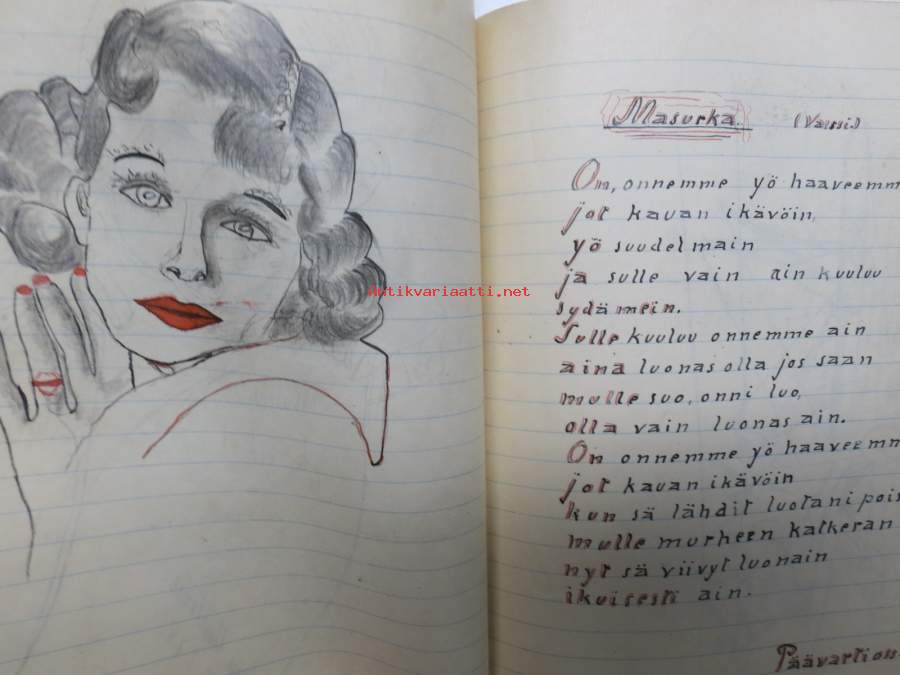 Masurka. (Valssi)
On, onnemme yö haaveemm
jot kauan ikävöin,
yö suudelmain
ja sulle vain ain kuuluu
sydämein.
Sulle kuuluu onnemme ain
aina luonas olla jos saan
mulle suo, onni luo,
olla vain luonas ain.
On onnemme yö haaveemm
jot kauan ikävöin
kun sä lähdit luotani pois
mulle murheen katkeran
nyt sä viivyt luonain
ikuisesti ain.
Päävartios
Antikvariaatti.net